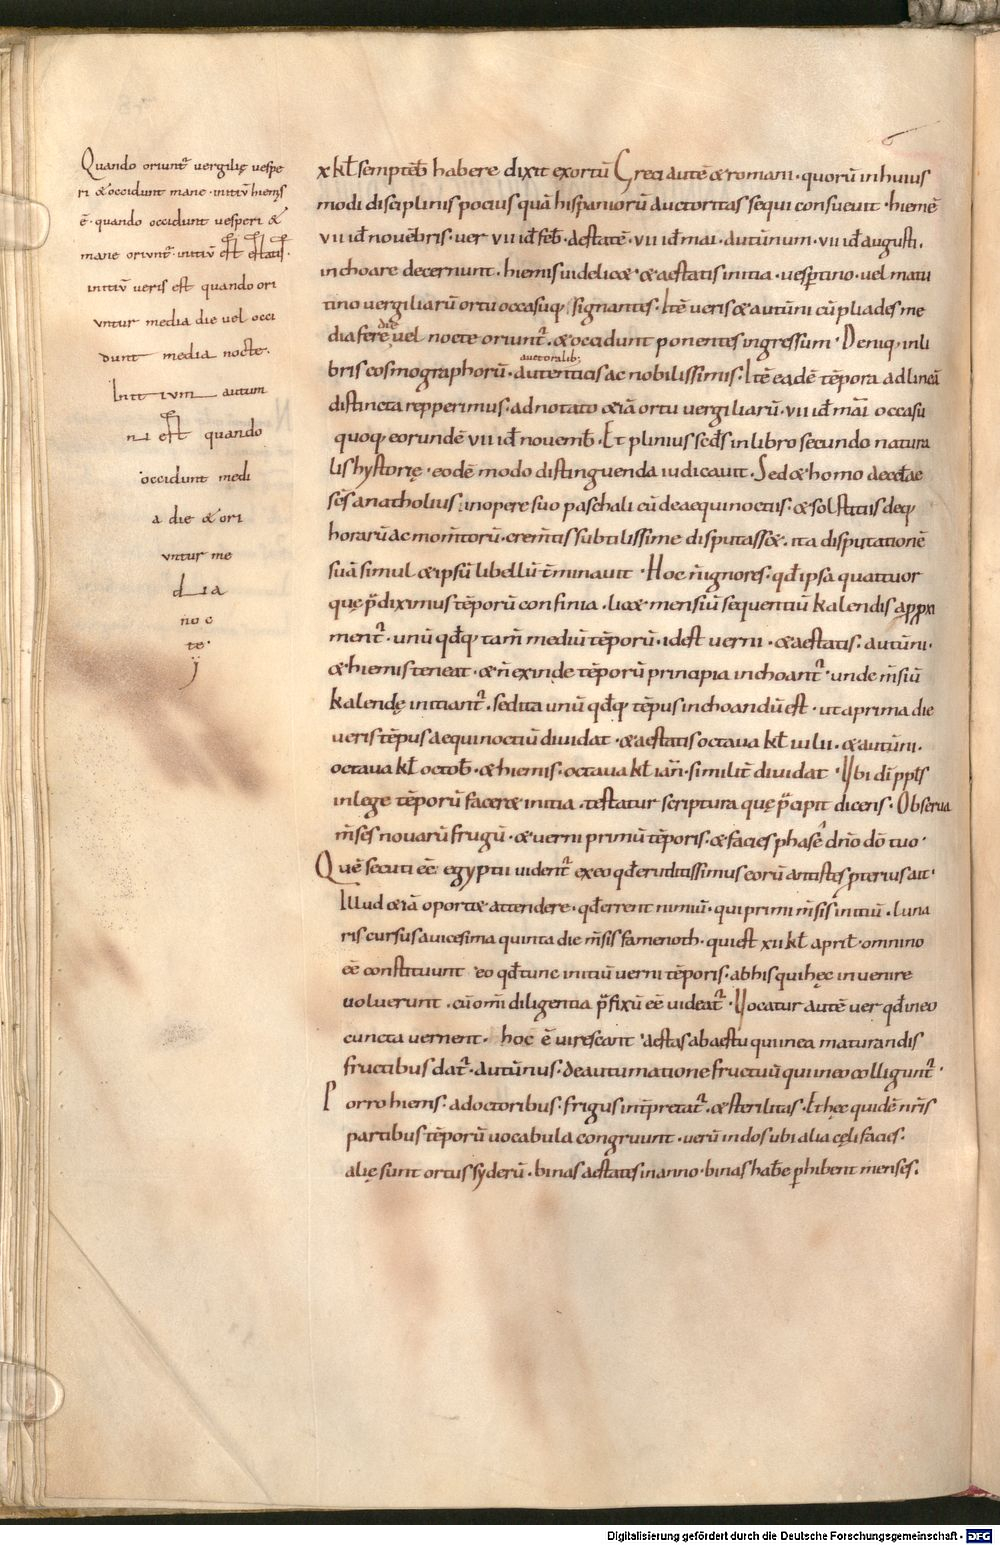 Quando oriunt᷑ vergilię vespe
ri & occidunt mane · initiū hiemis
ē · quando occidunt vesperi &
mane oriunt᷑ · initiū est estatis ·
initiū veris est quando ori
vntur media die vel occi
dunt media nocte ·
Initium autum
ni est quando
occidunt medi
a die & ori
vntur me
dia
noc
te ·
x kł septēb̄ habere dixit exortū Greci autē & romani · quorū in huius
modi disciplinis pocius quā hispaniorū auctoritas sequi consueuit · hiemē
vii id̄ nouēbris · ver vii id̄ feb̄ · aestatē · vii id̄ mai · autūnum · vii id̄ augusti ·
inchoare decernunt · hiemis uidelicet & aestatis initia · uesptino · vel matu
tino vergiliarū ortu occasuq; signantes · Itē veris & autūni cū pliades me
dia fere die vel nocte oriunt᷑ · & occidunt ponentes ingressum · Deniq; in li
auctoralib;
bris cosmographorū · autenticis ac nobilissimis · Itē eadē tēpora ad lineā
distincta repperimus · adnotato &iā ortu vergiliarū · vii id̄ māi occasu
quoq; eorundē vii id̄ nouemb̄ · Et plinius scd̄s in libro secundo natura
lis hystorię · eodē modo distinguenda iudicauit · Sed & homo aeccłae
scs̄ anatholius · in opere suo paschali cū de aequinoctiis · & solstitiis deq;
horarū ac mom̄torū · crem̄tis subtilissime disputass& · ita disputationē
suā simul & ipsū libellū t̄minauit · Hoc n̄ ignores · qd̄ ipsa quattuor
quę p̄diximus tēporū confinia · lic& mensiū sequentiū kalendis approxi
ment᷑ · unū qd̄q; tam̄ mediū tēporū · id est verni · & aestatis · autūni ·
& hiemis teneat · & n̄ exinde tēporū principia inchoant᷑ · unde m̄siū
kalendę initiant᷑ · sed ita unū qd̄q; tēpus inchoandū est · ut a prima die
ueris tēpus aequinoctiū diuidat · & aestatis octaua kł iulii · & autūni ·
octaua kł octob̄ · & hiemis · octaua kł ian̄ · similit̄ diuidat · Ubi dī ppłs
in lege tēporū facer& initia · testatur scriptura quę p̄cipit dicens · Obserua
m̄ses nouarū frugū · & verni primū tēporis · & facies phase dn̄o dō tuo ·
Quē secuti eē egyptii uident᷑ ex eo qd̄ eruditissimus eorū antistes pterius ait ·
Illud &iā oport& attendere · qd̄ errent nimiū · qui primi m̄sis initiū · luna
ris cursus a uicesima quinta die m̄sis famenoth · qui est xii kł april̄ · omnino
eē constituunt eo qd̄ tunc initiū uerni tēporis · ab his qui hęc inuenire
uoluerunt · cū om̄i diligentia p̄fixū eē uideat᷑ · Uocatur autē uer qd̄ in eo
cuncta vernent · hoc ē uirescant · aestas ab aestu qui in ea maturandis
fructibus dat᷑ · autūnus · de autumatione fructuū qui in eo colligunt᷑ ·
Porro hiems · a doctoribus · frigus int̄pretat᷑ · & sterilitas · Et hęc quidē nr̄is
partibus tēporū uocabula congruunt · uerū indos ubi alia cęli facies ·
alię sunt ortus syderū · binas aestates in anno · binas hab̄e phibent menses ·
Digitalisierung gefördert durch die Deutsche Forschungsgemeinschaft - DFG